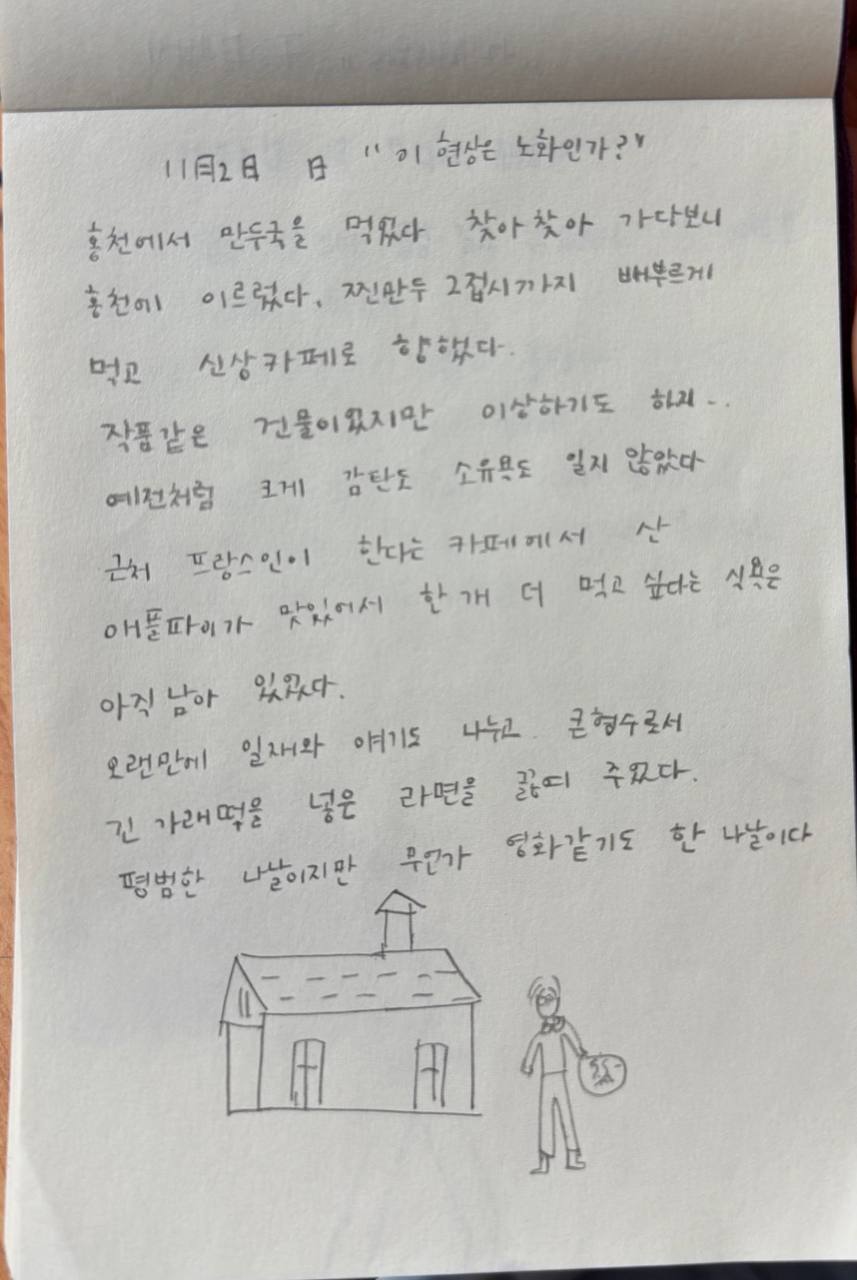 11月2日 日 "이 현상은 노화인가?"
홍천에서 만두국을 먹었다 찾아찾아 가다보니
홍천에 이르렀다. 찐만두 2접시까지 배부르게
먹고 신상카페로 향했다.
작품같은 건물이었지만 이상하기도 하지..
예전처럼 크게 감탄도 소유욕도 일지 않았다
근처 프랑스인이 한다는 카페에서 산
애플파이가 맛있어서 한 개 더 먹고 싶다는 식욕은
아직 남아 있었다.
오랜만에 일재와 얘기도 나누고 큰형수로서
긴 가래떡을 넣은 라면을 끓여 주었다.
평범한 나날이지만 무언가 영화같기도 한 나날이다